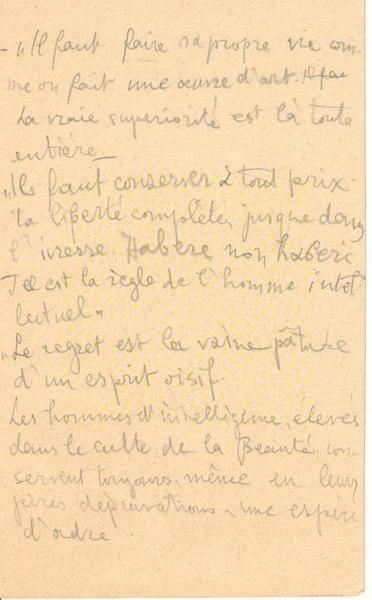 - "Il faut faire sa propre vie com-
me on fait une œuvre d'art. Il fau
La vraie superiorité est là toute
entière_
"Il faut conserver à tout prix
la liberté complète, jusque dans
l'ivresse. Habere non haberi
Tel est la règle de l'homme intel-
lectuel"
"Le regret est la vaine pâture
d'un esprit oisif.
Les hommes d'intelligence, élevés
dans le culte de la Beauté, con
servent toujours, même en leurs
pires dépravations, une espèce
d'ordre